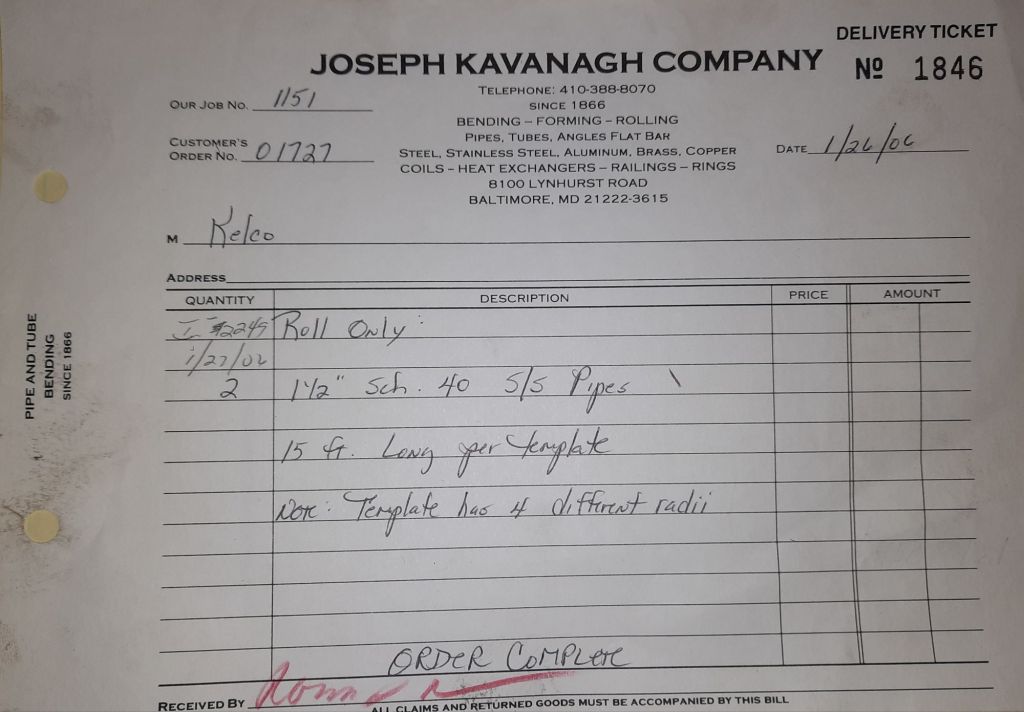 DELIVERY TICKET
JOSEPH KAVANAGH COMPANY
Nº 1846
TELEPHONE: 410-388-8070
SINCE 1866
BENDING – FORMING – ROLLING
PIPES, TUBES, ANGLES FLAT BAR
STEEL, STAINLESS STEEL, ALUMINUM, BRASS, COPPER
COILS – HEAT EXCHANGERS – RAILINGS – RINGS
8100 LYNHURST ROAD
BALTIMORE, MD 21222-3615
OUR JOB NO. 1151
CUSTOMER'S
ORDER NO. 01727
DATE 1/26/06
M Kelco
ADDRESS
QUANTITY DESCRIPTION PRICE AMOUNT
Roll Only:
2 1 1/2" Sch. 40 S/S Pipes
15 ft. Long per template
Note: Template has 4 different radii
ORDER COMPLETE
RECEIVED BY
ALL CLAIMS AND RETURNED GOODS MUST BE ACCOMPANIED BY THIS BILL
PIPE AND TUBE
BENDING
SINCE 1866